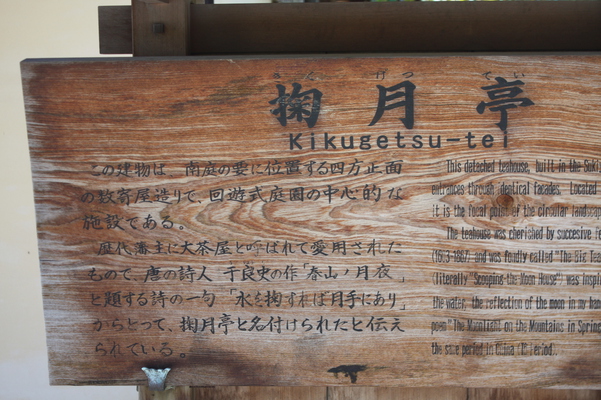 きくげつてい
掬月亭
Kikugetsu-tei
この建物は、南庭の要に位置する四方正面
の数寄屋造りで、回遊式庭園の中心的な
施設である。
歴代藩主に大茶屋と呼ばれて愛用された
もので、唐の詩人 于良史の作「春山ノ月夜」
と題する詩の一句「水を掬すれば月手にあり」
からとって、掬月亭と名付けられたと伝え
られている。
This detached teahouse, built in the Suki
entrances through dentical facades. Located
it is the focal point of the circular landscap
The teahouse was cherished by succesive fe
and was foudly called "The Big Tea
(literally "Scooping-the Moon House") was inspir
the water, the reflection of the moon in my hand
poem "The Moonlight on the Mountains in Spring
the same period in China